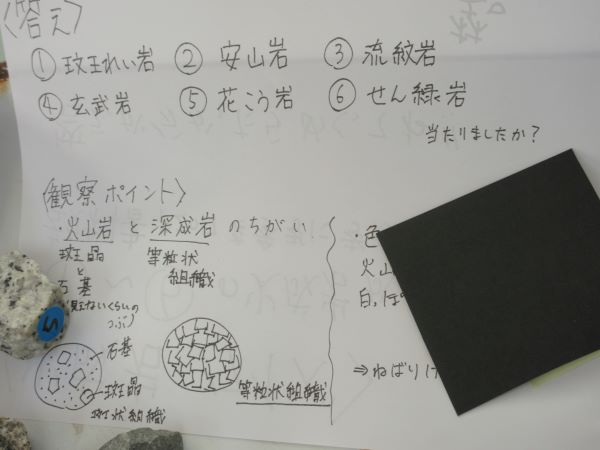 〈答え〉
① 玟王れい岩 ② 安山岩 ③ 流紋岩
④ 玄武岩 ⑤ 花こう岩 ⑥ せん緑岩
当たりましたか？
〈観察ポイント〉
・火山岩と深成岩のちがい
斑晶
と
石基
(見えないくらいの
つぶ)
等粒状
組織
石基
斑晶
斑状組織
等粒状組織
・色
火山
白っぽ
⇒ねばりけ
5